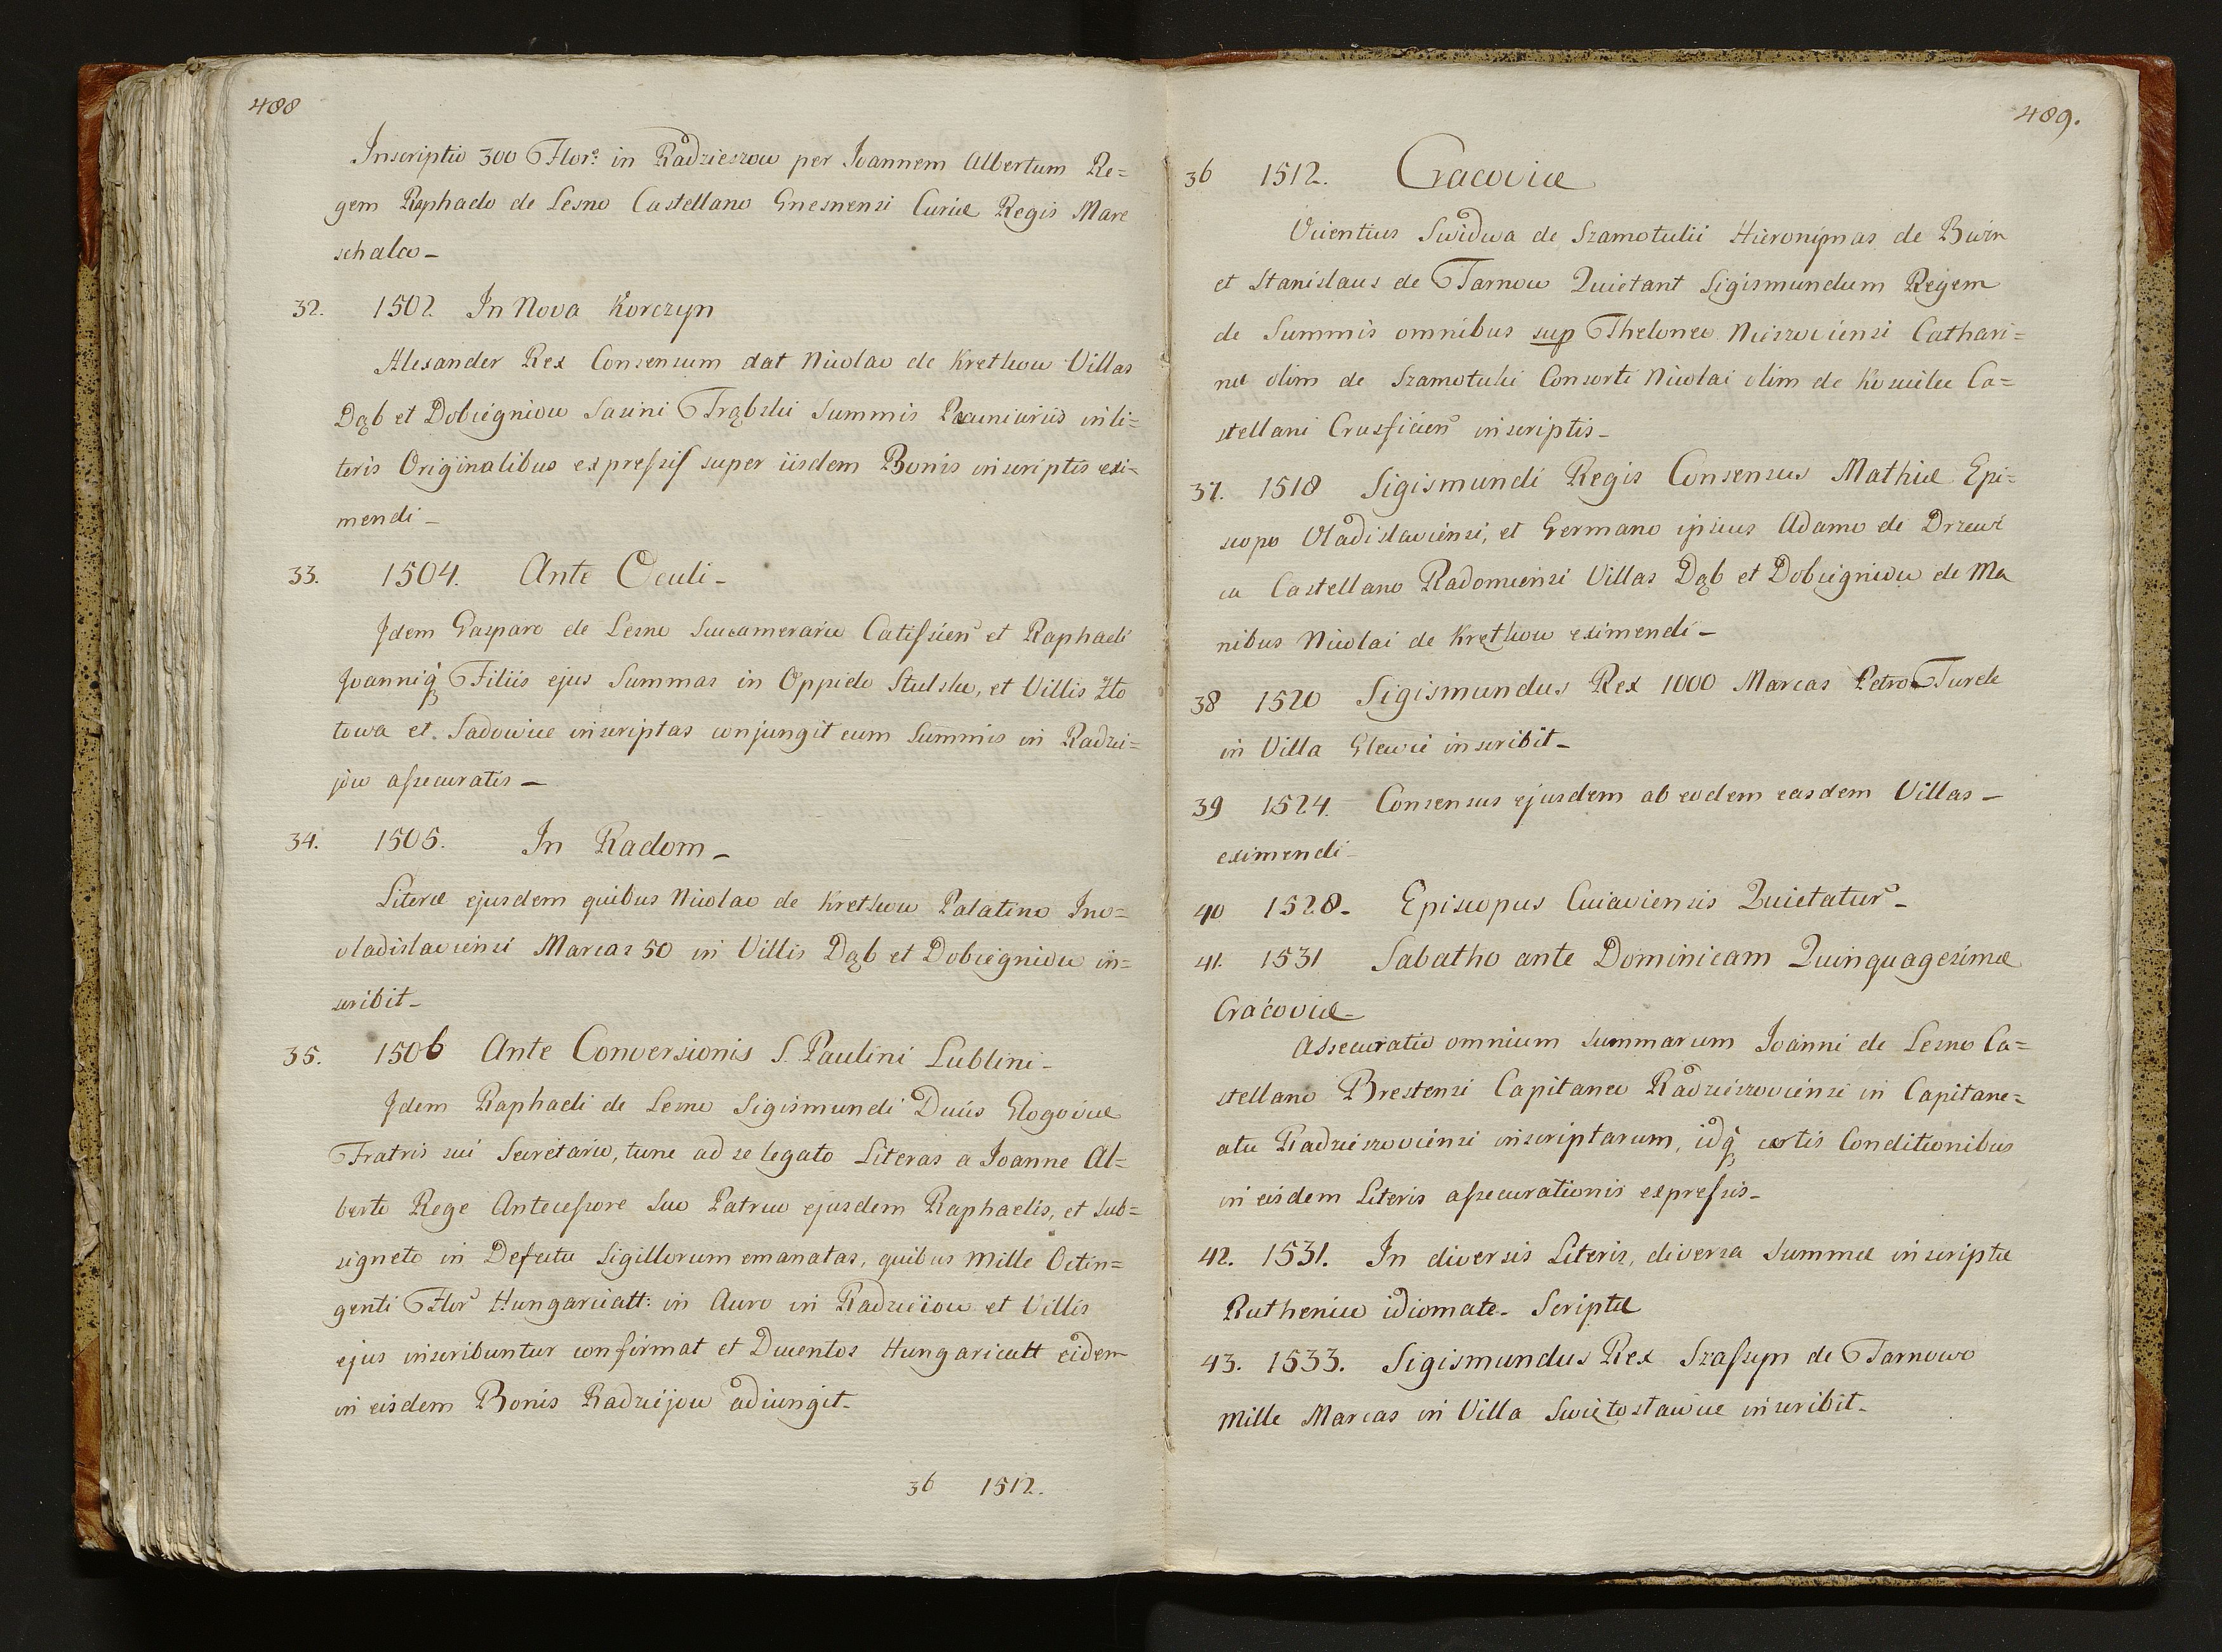 488
Inscriptio 300 Flor: in Radzieszow per Ioannem Albertum Re=
gem Raphaelo de Lesno Castellano Gnesnensi Curiæ Regis Mare
schalco_
32. 1502 In Nova Korczyn
Alexander Rex Consensum dat Nicolao de Kretkow Villas
Dąb et Dobiegniow Sasini Trąbski Summis Pecuniariis in li=
teris Originalibus expressis super iisdem Bonis inscriptis exi=
mendi_
33. 1504. Ante Oculi_
Idem Gasparo de Lesno Succamerario Calissien et Raphaeli
Joanniq Filiis ejus Summas in Oppido Stulsko, et Villis Zło
towa et Sadowice inscriptas conjungit cum Summis in Radzi=
jow assecuratis_
34. 1505. In Radom_
Literæ ejusdem quibus Nicolao de Kretkow Palatino Ino=
vladislaviensi Marcas 50 in Villis Dąb et Dobiegniow in=
scribit_
35. 1506 Ante Conversionis S. Paulini Lublini_
Idem Raphaeli de Lesno Sigismundi Ducis Glogoviæ
Fratris sui Secretario, tunc ad se legato Literas a Joanne Al=
berto Rege Antecessore Suo Patruo ejusdem Raphaelis, et sub=
signeto in Defectu Sigillorum emanatas, quibus Mille Octin=
genti Flor Hungaricatt: in Auro in Radzieiow et Villis
ejus inscribuntur confirmat et Ducentos Hungaricatt eidem
in eisdem Bonis Radziejow adiungit_
36 1512.
489.
36 1512. Cracoviæ
Vicentius Swidwa de Szamotulii Hieronymas de Bwin
et Stanislaus de Tarnow Quietant Sigismundum Regem
de Summis omnibus sup Theloneo Nieszoviensi Cathari=
næ olim de Szamotuli Consorti Nicolai olim de Koscielec Ca=
stellani Crusficien inscriptis_
37. 1518 Sigismundi Regis Consensus Mathiæ Epi=
scopo Vladislaviensi, et Germano ipsius Adamo de Drzewi
ca Castellano Radomiensi Villas Dąb et Dobiegniow de Ma
nibus Nicolai de Kretkow eximendi_
38 1520 Sigismundus Rex 1000 Marcas Petro Turek
in Villa Glewie inscribit_
39 1524. Consensus ejusdem ab eodem easdem Villas_
eximendi_
40 1528_ Episcopus Cuiaviensis Quietatur_
41. 1531 Sabatho ante Dominicam Quinquagesimæ
Cracoviæ_
Assecuratio omnium Summarum Ioanni de Lesno Ca=
stellano Brestensi Capitaneo Radzieszoviensi in Capitane=
atu Radzieszoviensi inscriptarum, idq certis Conditionibus
in eisdem Literis assecurationis expressis_
42. 1531. In diversis Literis, diversa Summæ inscriptæ
Ruthenico idiomate_ Scriptæ
43. 1533. Sigismundus Rex Szassyn de Tarnowo
Mille Marcas in Villa Swiętosławice inscribit_